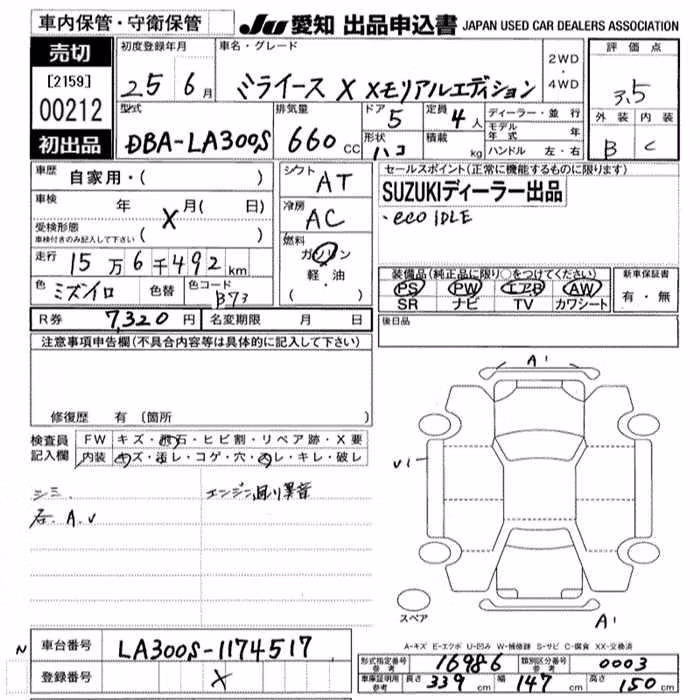 車内保管・守衛保管
JU 愛知 出品申込書 JAPAN USED CAR DEALERS ASSOCIATION
売切
[2159]
00212
初出品
初度登録年月
25 6月
車名・グレード
ミライース X Xモリアルエディション
2WD
・
4WD
評価点
3.5
外装 内装
B C
型式
DBA-LA300S
排気量
660 CC
ドア
5
形状
ハコ
定員
4人
積載
kg
ディーラー・並行
モデル年式 年
ハンドル 左・右
車歴 自家用・( )
車検 年 X 月( 日)
受検形態
車検付きのみ記入して下さい ( )
走行 15万6千492km
色 ミズイロ 色替 色コード B73
シフト AT
冷房 AC
燃料
ガソリン
軽・油
( )
セールスポイント(正常に機能するものに限ります)
SUZUKIディーラー出品
・eco IDLE
装備品(純正品に限り○をつけてください)
PS・PW・エアB・AW
SR ナビ TV カワシート
新車保証書
有・無
R券 7,320円 名変期限 月 日
後日品
注意事項申告欄(不具合内容等は具体的に記入して下さい)
修復歴 有(箇所 )
検査員記入欄
FW キズ・飛石・ヒビ割・リペア跡・X要
内装 キズ・汚レ・コゲ・穴・ヌレ・キレ・破レ
シミ、 エンジン廻リ異音
右. A.U
A1
U1
A1
スペア
A-キズ E-エクボ U-凹み W-補修跡 S-サビ C-腐食 XX-交換済
N 車台番号 LA300S-1174517
登録番号 X
型式指定番号 参考 16986 類別区分番号 参考 0003
車庫証明用 参考 長さ 339cm 幅 147cm 高さ 150cm